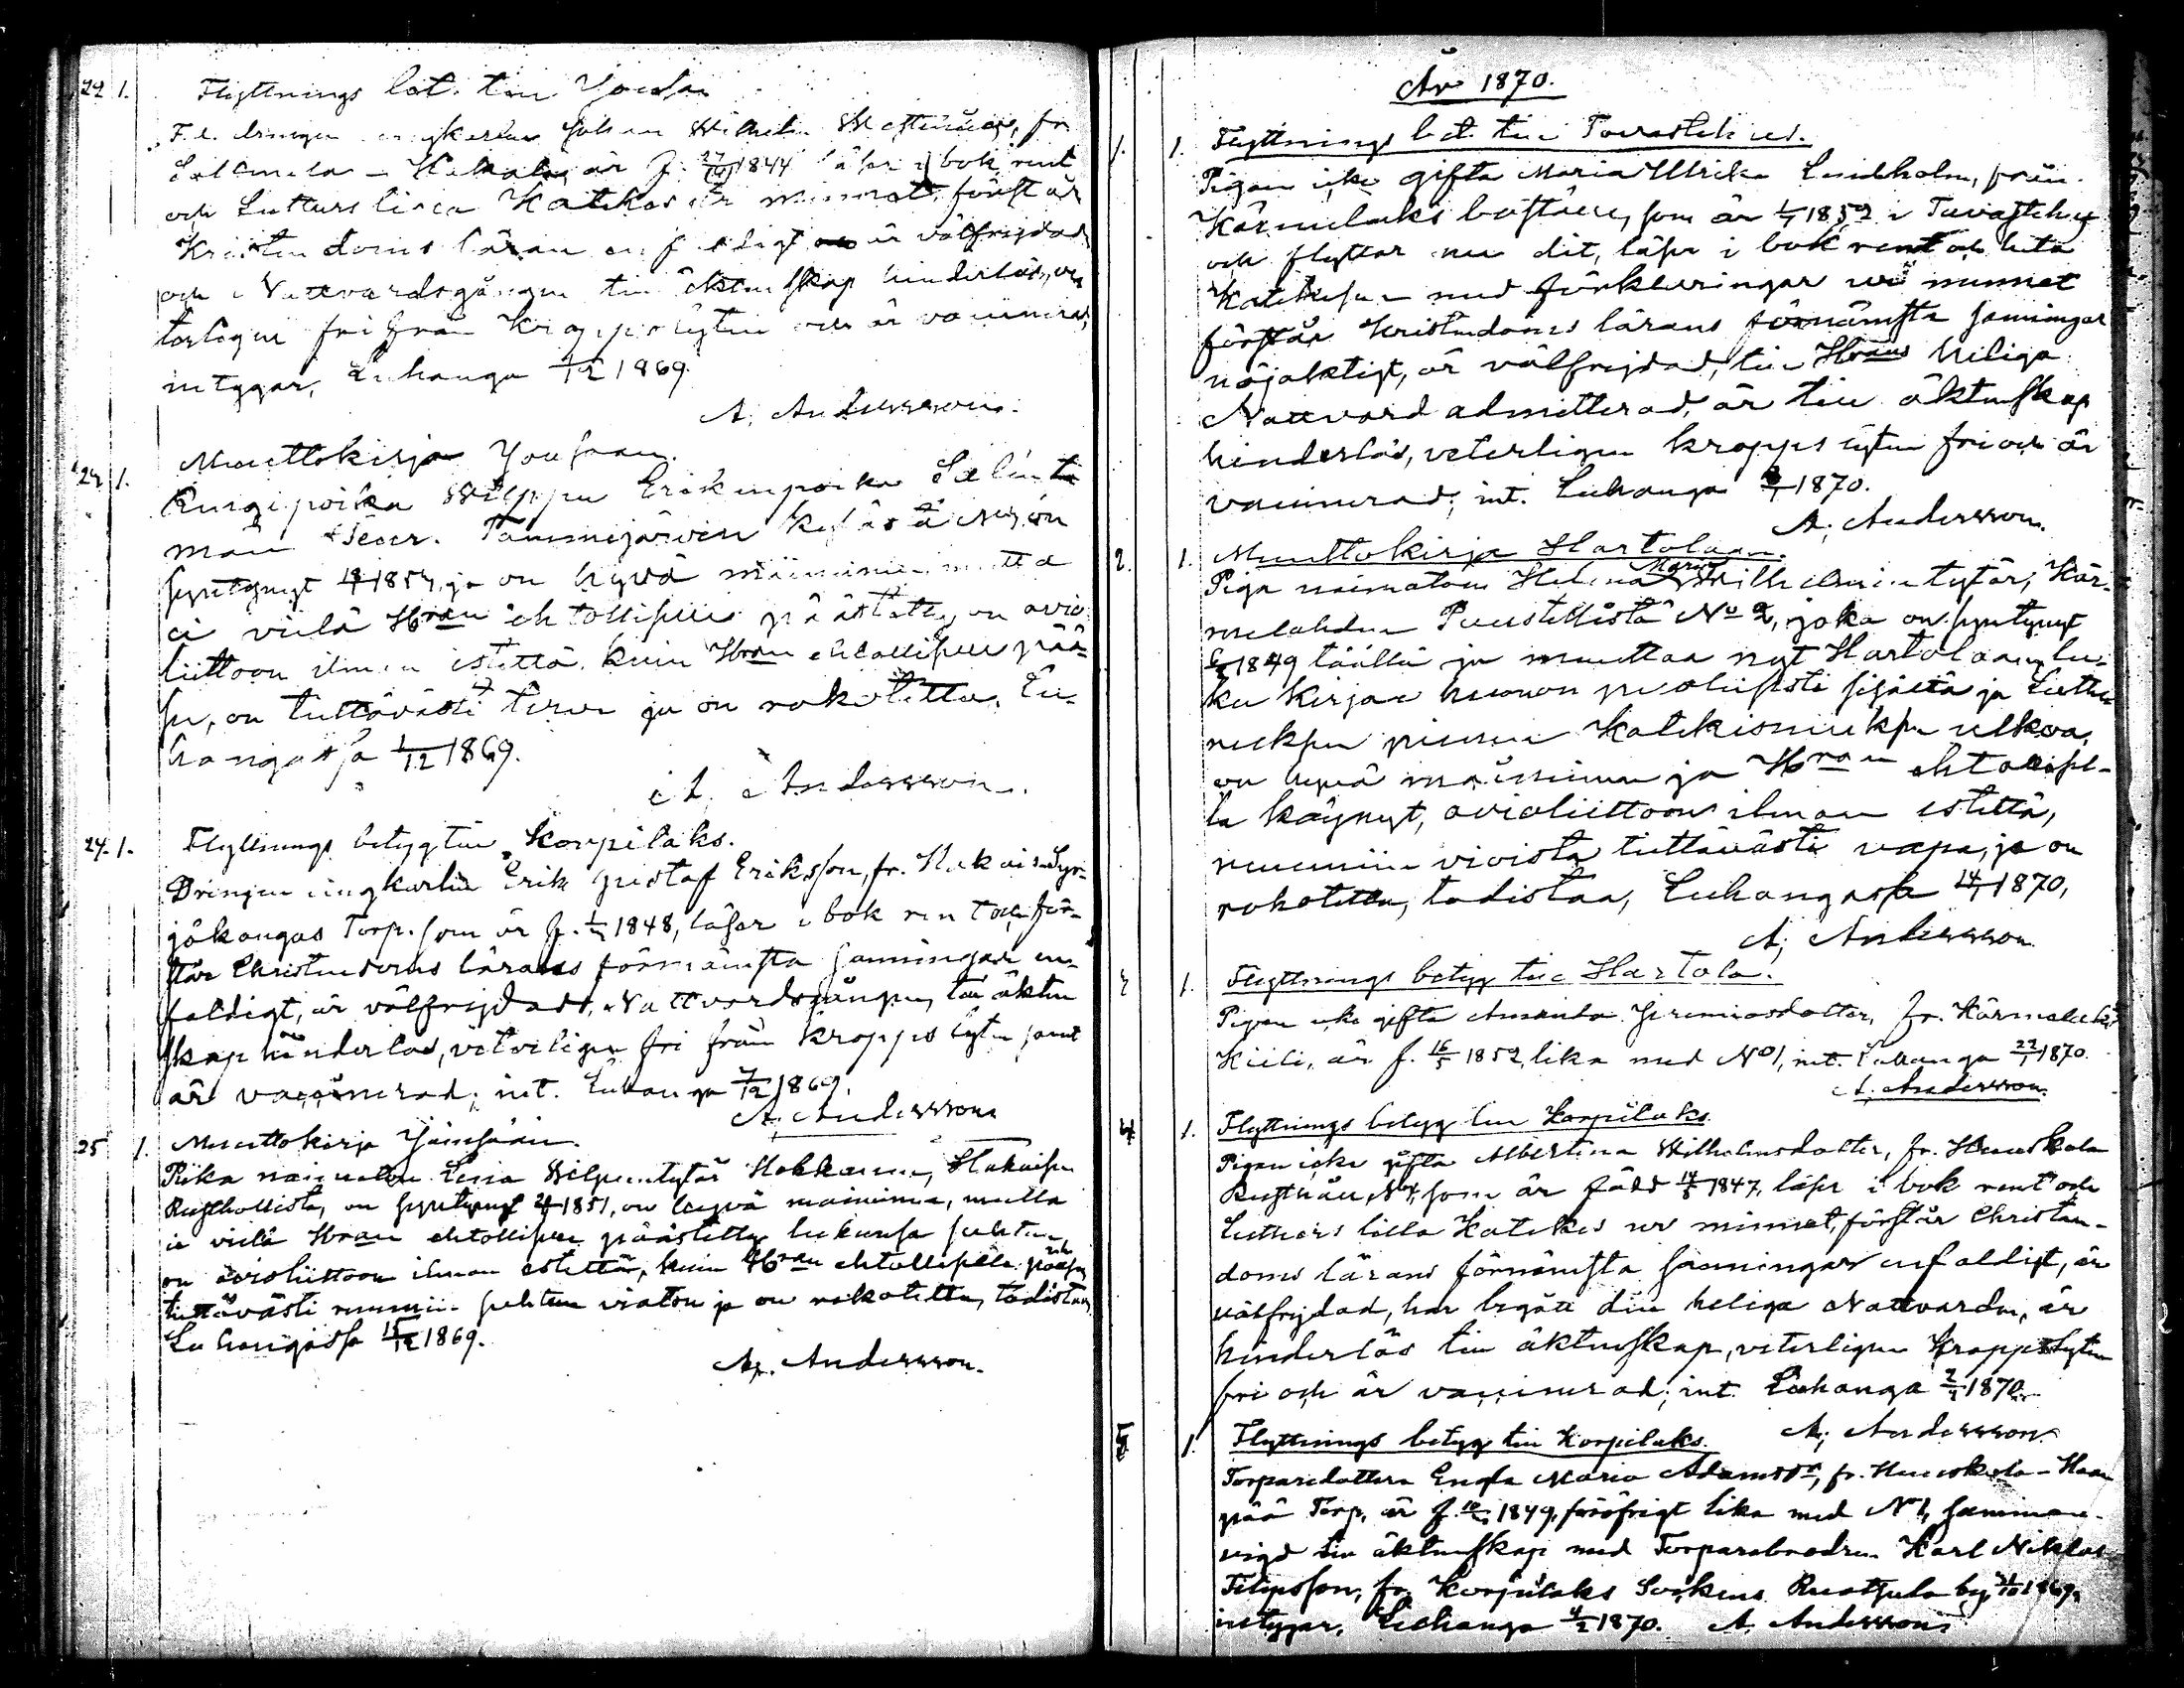 22 1. Flyttnings bet. till Joutsa
F. d. Drängen ungkarlen Johan Wilhelm, fr.
är f. 27/10 1844 läser i bok rent
och Lutturs Lilla Katekes ur minnet, förstår
Kristendoms läran enfaldigt är välfrejdad
och i Nattvardsgången till äktenskap hinderlös, ve
terligen fri från kroppslyten och är vaccinerad,
intygar, Luhanga 1/12 1869.
A. Andersson.
24 1. Muuttokirja Joutsaan.
Rengipoika Wilppu Erikinpoika
män Tammijärven kylästä N:o on
syntynyt 1854, ja on hyvä maininen mutta
ei vielä Hran ehtollisella päästetty, on avio
liittoon ilman estettä, kuin Hran ehtollisella pää-
see, on tuttävästi terve ja on rokotettu. Lu-
hangassa 1/12 1869.
A. Andersson.
24. 1. Flyttnings betyg till Korpilaks.
Drängen ungkarlen Erik Gustaf Eriksson, fr.
jökangas Torp. som är f. 1848, läser i bok rent och för-
står Christendoms lärans förnämsta sanningar en-
faldigt, är välfrejdad, Nattvardsgången, till äkten
skap hinderlös, veterligen fri från kropps lyten samt
är vaccinerad; int. Luhanga 7/12 1869.
A. Andersson
25 1. Muuttokirja Jämsään.
Piika naimaton Leena Wilpuntytär Hokkanen,
Rusthollista, on syntynyt 1851, on hyvä maininen, mutta
ei vielä Hran ehtollisella päästetty
on avioliittoon ilman estettä, kuin Hran ehtollisella pääsee
tuttävästi ruumiin puhtuu viaton ja on rokotettu, todistaa,
Luhangassa 15/12 1869.
A. Andersson.
År 1870.
1. 1. Flyttnings bet. till Tavastehus.
Pigan icke gifta Maria Ulrika Lindholm, från
Kärmelaks boställe, som är 1852 i Tavastehus
och flyttar nu dit, läser i bok rent och hela
Katekesen med förklaringar ur minnet
förstår Kristendoms lärans förnämsta sanningar
nöjaktigt, är välfrejdad, till Hrans heliga
Nattvard admitterad, är till äktenskap
hinderlös, veterligen kropps lyten fri och är
vaccinerad; int. Luhanga 1870.
A. Andersson.
2. 1. Muuttokirja Hartolaan.
Piga naimaton Helena Maria Wilhelmiina tytär, Kär-
melahden Puustellistä No 2, joka on syntynyt
1849 täällä ja muuttaa nyt Hartolaan, lu-
kee kirjan huonon puolisesti sisältä ja Luthe
ruksen pienen Katekismuksen ulkoa,
on hyvä maininen ja Hran ehtoolisel-
la käynyt, avioliittoon ilman estettä,
ruumiin vioista tuttävästi vapa, ja on
rokotettu, todistaa, Luhangassa 14/1 1870,
A. Andersson
3 1. Flyttnings betyg till Hartola.
Pigan icke gifta Amanda Jeremiasdotter, fr. Kärmelaks
Kiili, är f. 16/5 1852, lika med No 1, int. Luhanga 22/1 1870.
A. Andersson.
4 1. Flyttnings betyg till Korpilaks.
Pigan icke gifta Albertina Wilhelmsdotter, fr.
Rusthåll, No 4, som är född 1847, läser i bok rent och
Luthers lilla Katekes ur minnet, förstår Christen-
doms lärans förnämsta sanningar enfaldigt, är
välfrejdad, har begått den heliga Nattvarden, är
hinderlös till äktenskap, veterligen kroppslyten
fri och är vaccinerad; int. Luhanga 2/2 1870.
A. Andersson
5 1. Flyttnings betyg till Korpilaks.
Torparedottern Engla Maria Adamsdr, fr.
pää Torp, är f. 1849, föröfrigt lika med No 1, samman-
vigd till äktenskap med Torparebrodren Karl Niklas
Filipsson, fr. Korpilaks Sockens by 1869,
intygar, Luhanga 4/2 1870. A. Andersson